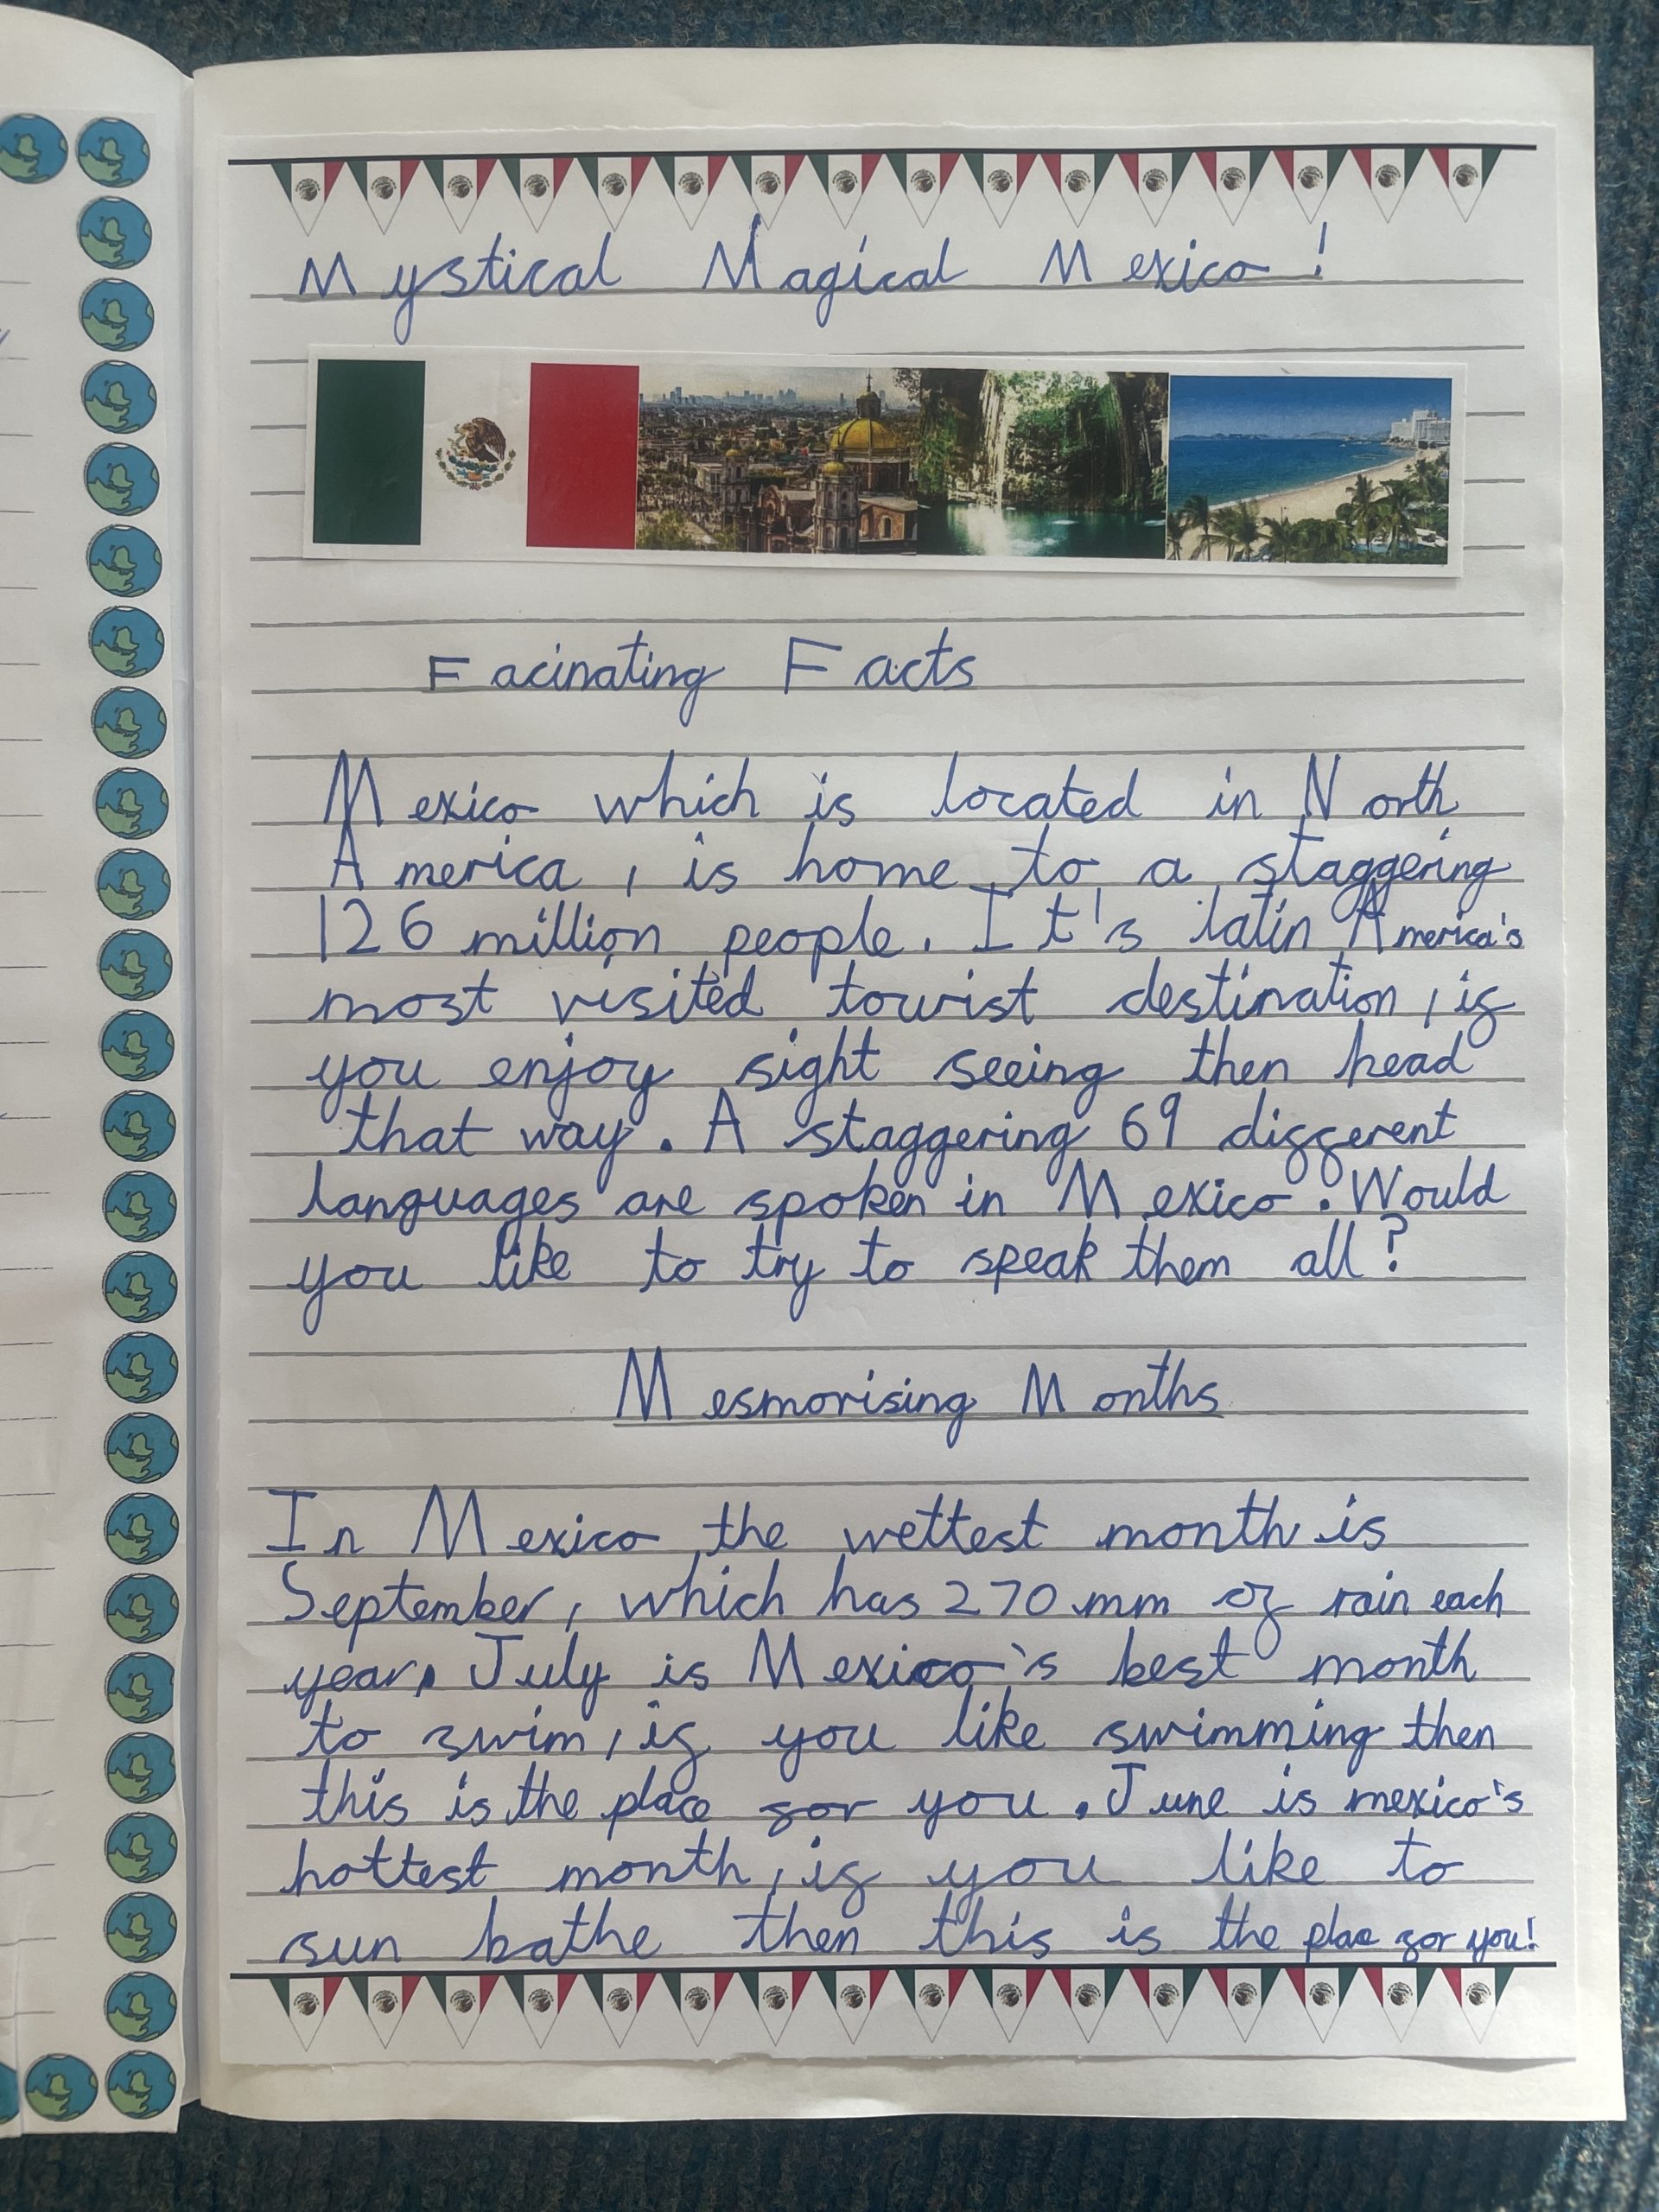 Mystical Magical Mexico!
Facinating Facts
Mexico which is located in North
America, is home to a staggering
126 million people. It's latin America's
most visited tourist destination, if
you enjoy sight seeing then head
that way. A staggering 69 different
languages are spoken in Mexico. Would
you like to try to speak them all?
Mesmorising Months
In Mexico the wettest month is
September, which has 270 mm of rain each
year. July is Mexico's best month
to swim, if you like swimming then
this is the place for you. June is mexico's
hottest month, if you like to
sun bathe then this is the place for you!